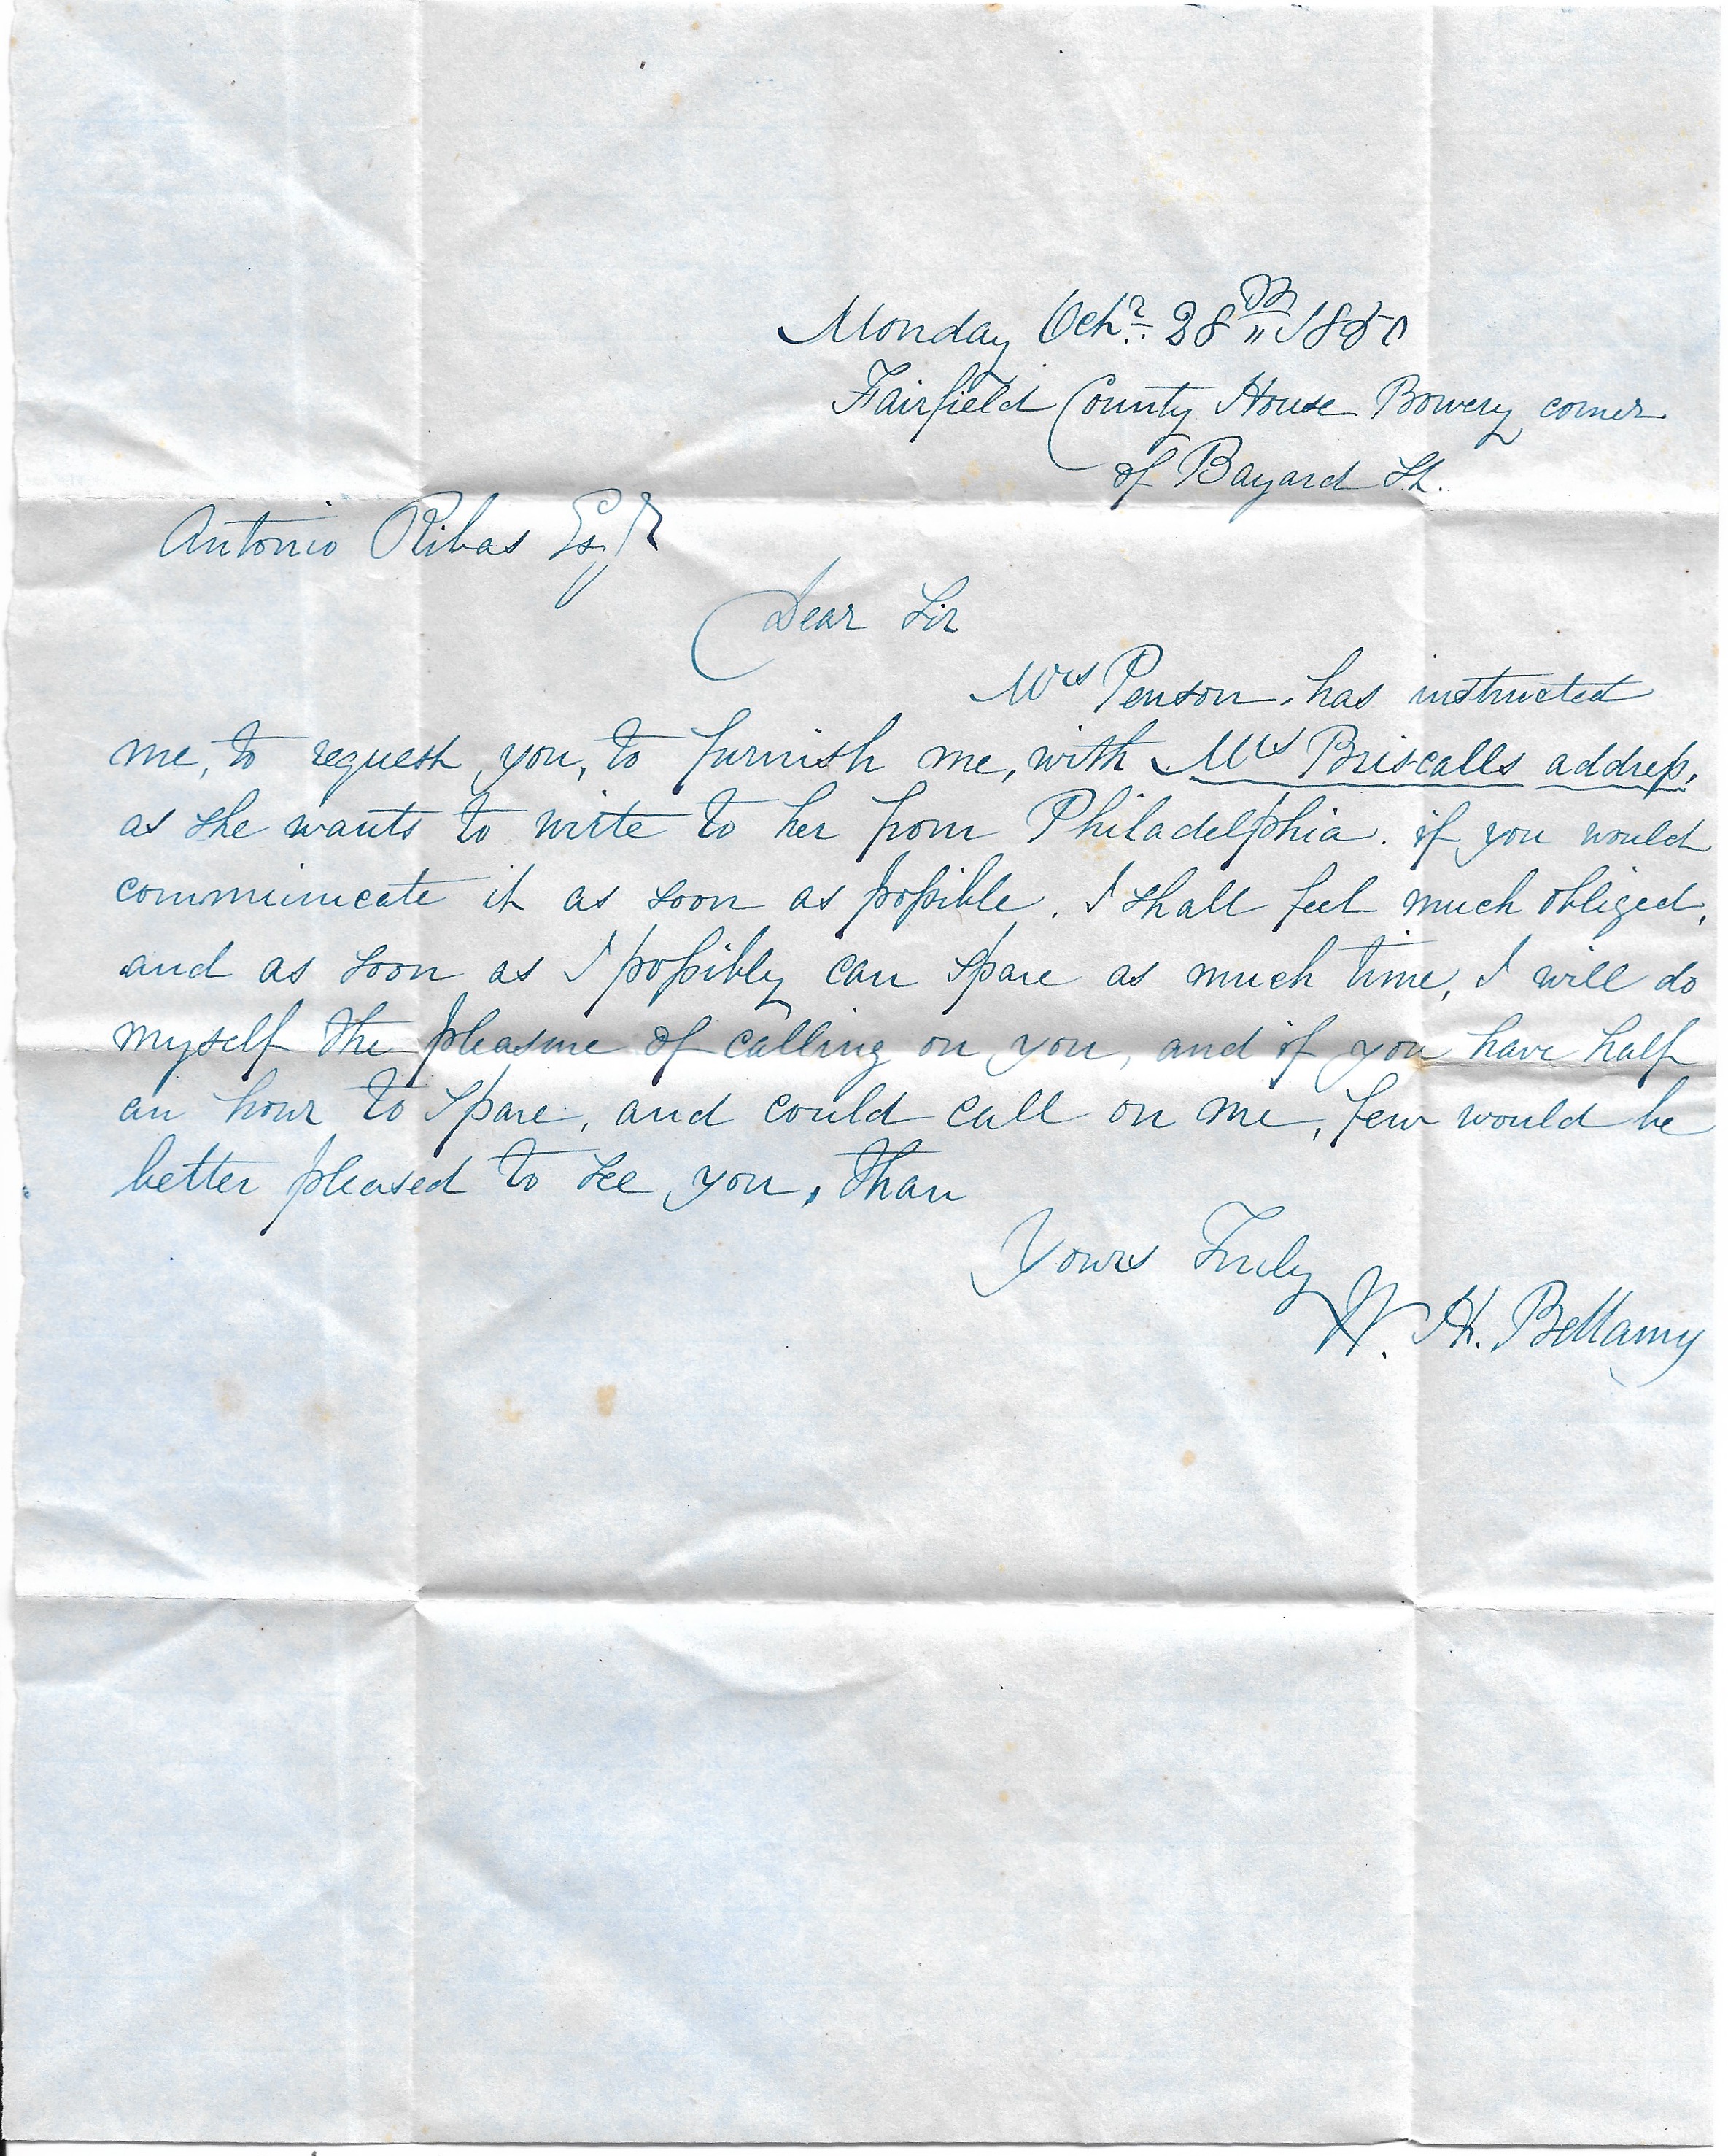 Monday Octr. 28th 1850
Fairfield County House Bowery corner
of Bayard St.
Antonio Ribas Esqr
Dear Sir
Mrs Penson, has instructed
me, to request you, to furnish me, with Mrs Briscalls address,
as she wants to write to her from Philadelphia. if you would
communicate it as soon as possible. I shall feel much obliged,
and as soon as I possibly can spare as much time, I will do
myself the pleasure of calling on you, and if you have half
an hour to spare, and could call on me, few would be
better pleased to see you, than
Yours Truly
W. H. Bellamy